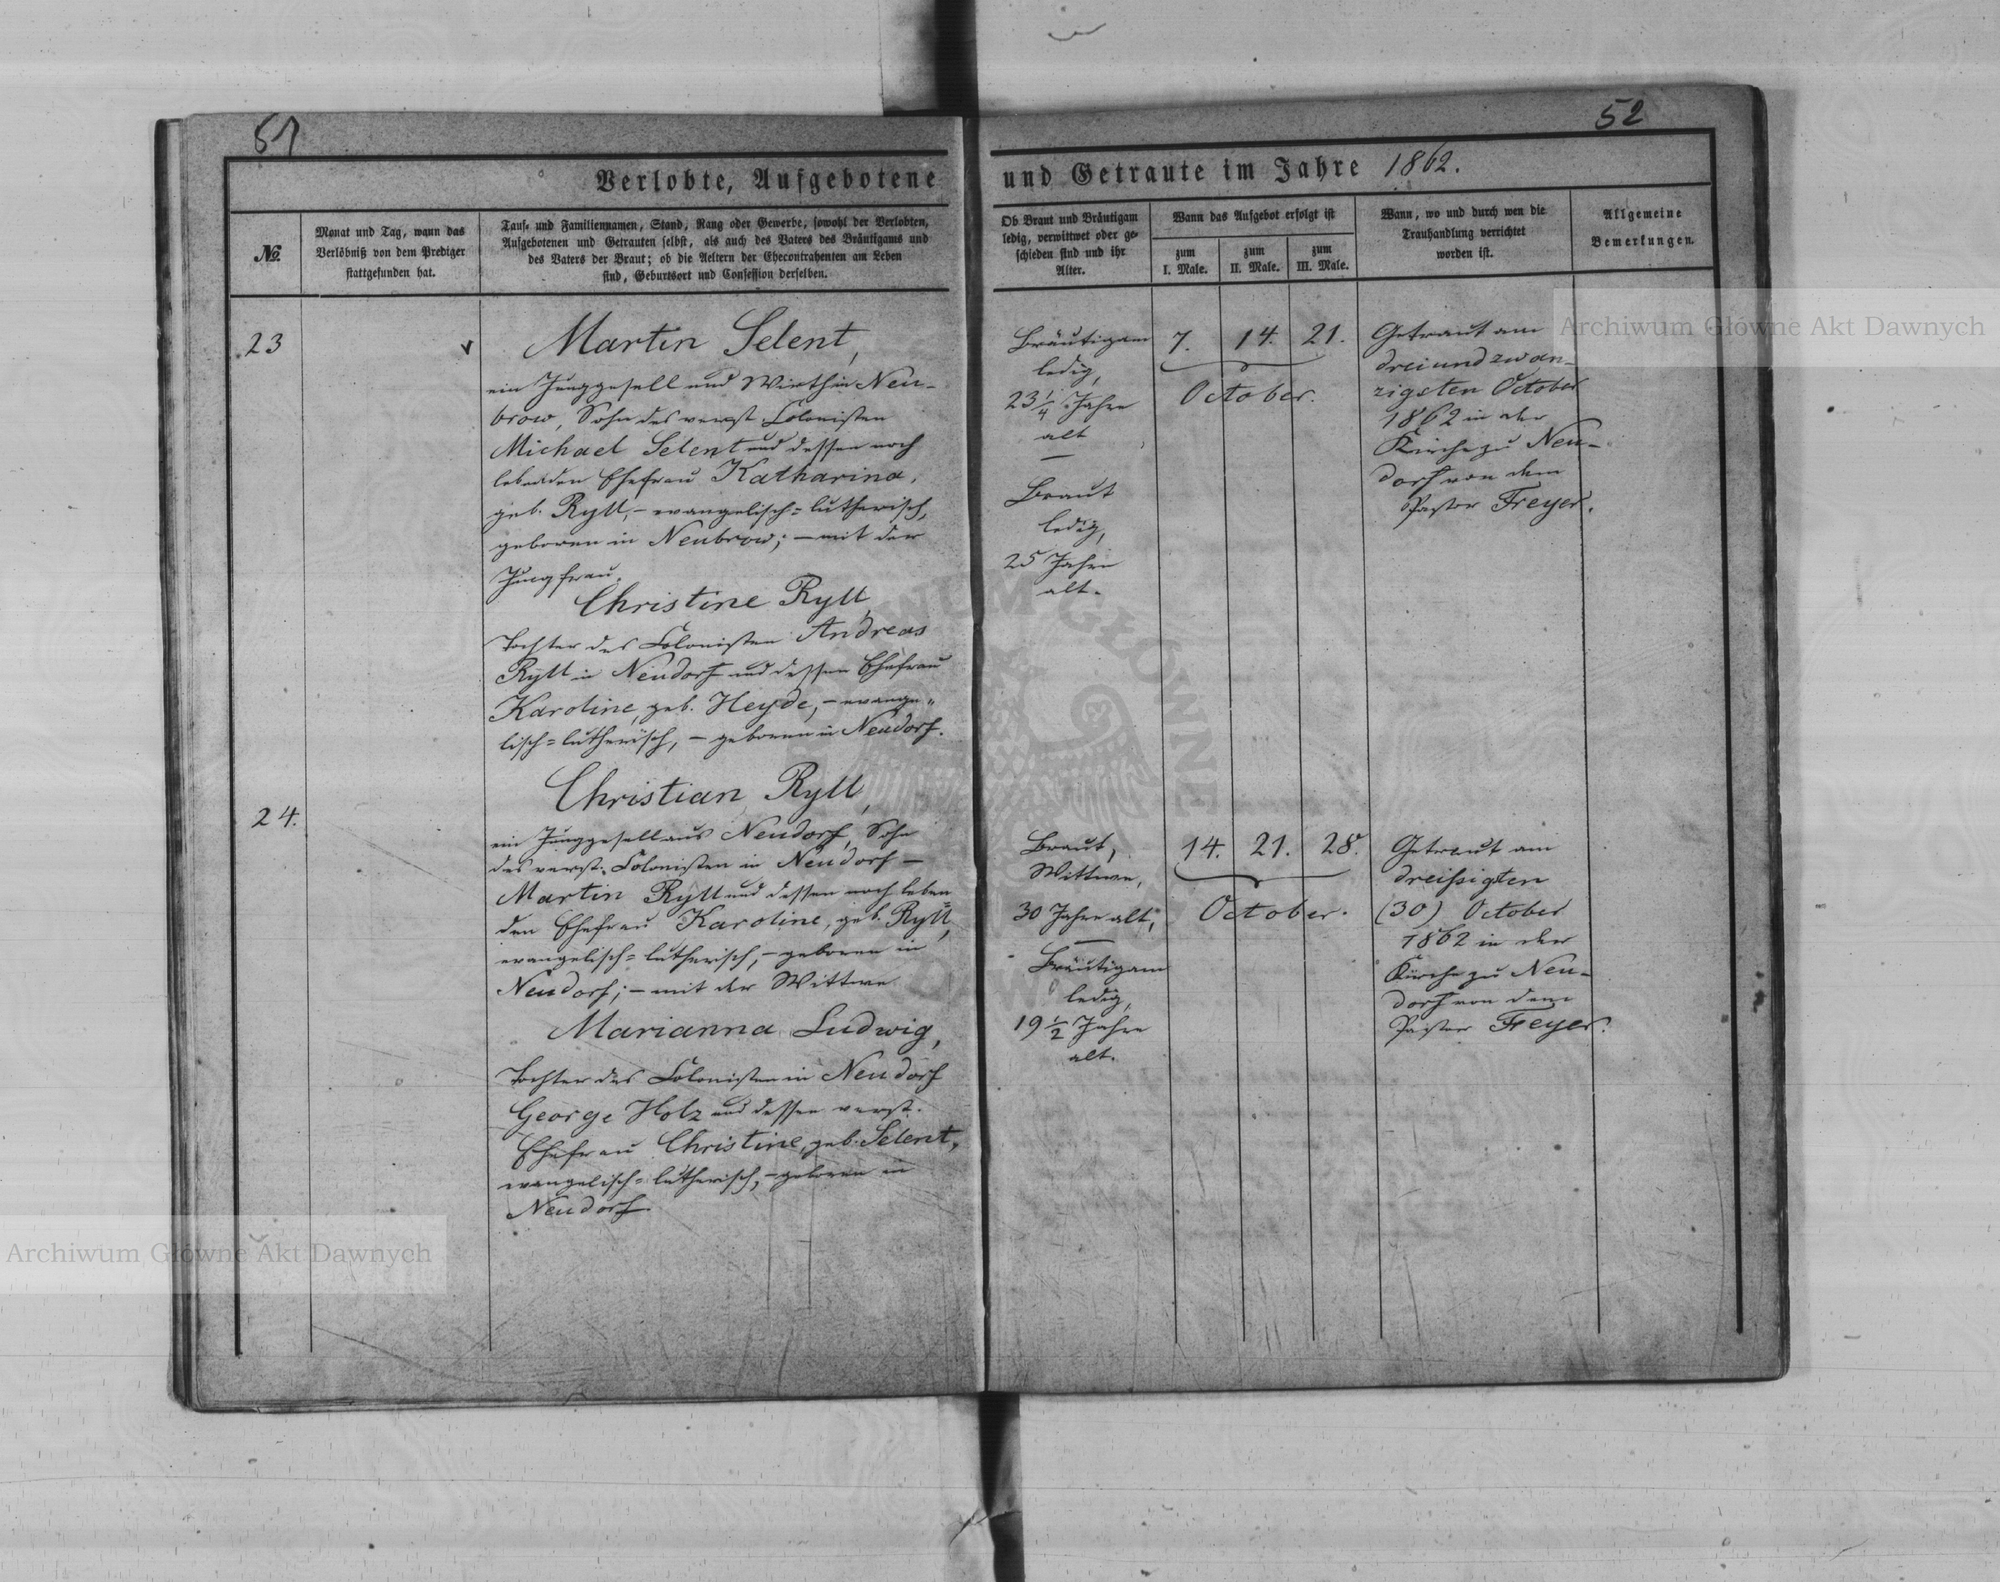 51
52
Verlobte, Aufgebotene
und Getraute im Jahre 1862.
No.
Monat und Tag, wann das
Verlöbniß von dem Prediger
stattgefunden hat.
Tauf- und Familiennamen, Stand, Rang oder Gewerbe, sowohl der Verlobten,
Aufgebotenen und Getrauten selbst, als auch des Vaters des Bräutigams und
des Vaters der Braut; ob die Aeltern der Ehecontrahenten am Leben
sind, Geburtsort und Confession derselben.
Ob Braut und Bräutigam
ledig, verwittwet oder ge-
schieden sind und ihr
Alter.
Wann das Aufgebot erfolgt ist
zum
I. Male.
zum
II. Male.
zum
III. Male.
Wann, wo und durch wen die
Trauhandlung verrichtet
worden ist.
Allgemeine
Bemerkungen.
23
Martin Selent,
ein Junggesell und Wirth in Neu-
brow, Sohn des verst. Colonisten
Michael Selent und dessen noch
lebenden Ehefrau Katharina,
geb. Ryll, – evangelisch=lutherisch,
geboren in Neubrow; – mit der
Jungfrau
Christine Ryll,
Tochter des Colonisten Andreas
Ryll in Neudorf und dessen Ehefrau
Karoline, geb. Heyde, – evange=
lisch=lutherisch, – geboren in Neudorf.
Bräutigam
ledig,
23 1/4 Jahre
alt
Braut
ledig,
25 Jahre
alt.
7. 14. 21.
October.
Getraut am
dreiundzwan-
zigsten October
1862 in der
Kirche zu Neu-
dorf von dem
Pastor Freyer.
24.
Christian Ryll,
ein Junggesell aus Neudorf, Sohn
des verst. Colonisten in Neudorf –
Martin Ryll und dessen noch leben=
den Ehefrau Karoline, geb. Ryll,
evangelisch=lutherisch, – geboren in
Neudorf; – mit der Wittwe
Marianna Ludwig,
Tochter des Colonisten in Neudorf
George Holz und dessen verst.
Ehefrau Christine, geb. Selent,
evangelisch=lutherisch, – geboren in
Neudorf.
Braut,
Wittwe,
30 Jahre alt,
Bräutigam
ledig,
19 1/2 Jahre
alt.
14. 21. 28.
October.
Getraut am
dreißigsten
(30) October
1862 in der
Kirche zu Neu-
dorf von dem
Pastor Freyer.
Archiwum Główne Akt Dawnych
Archiwum Główne Akt Dawnych